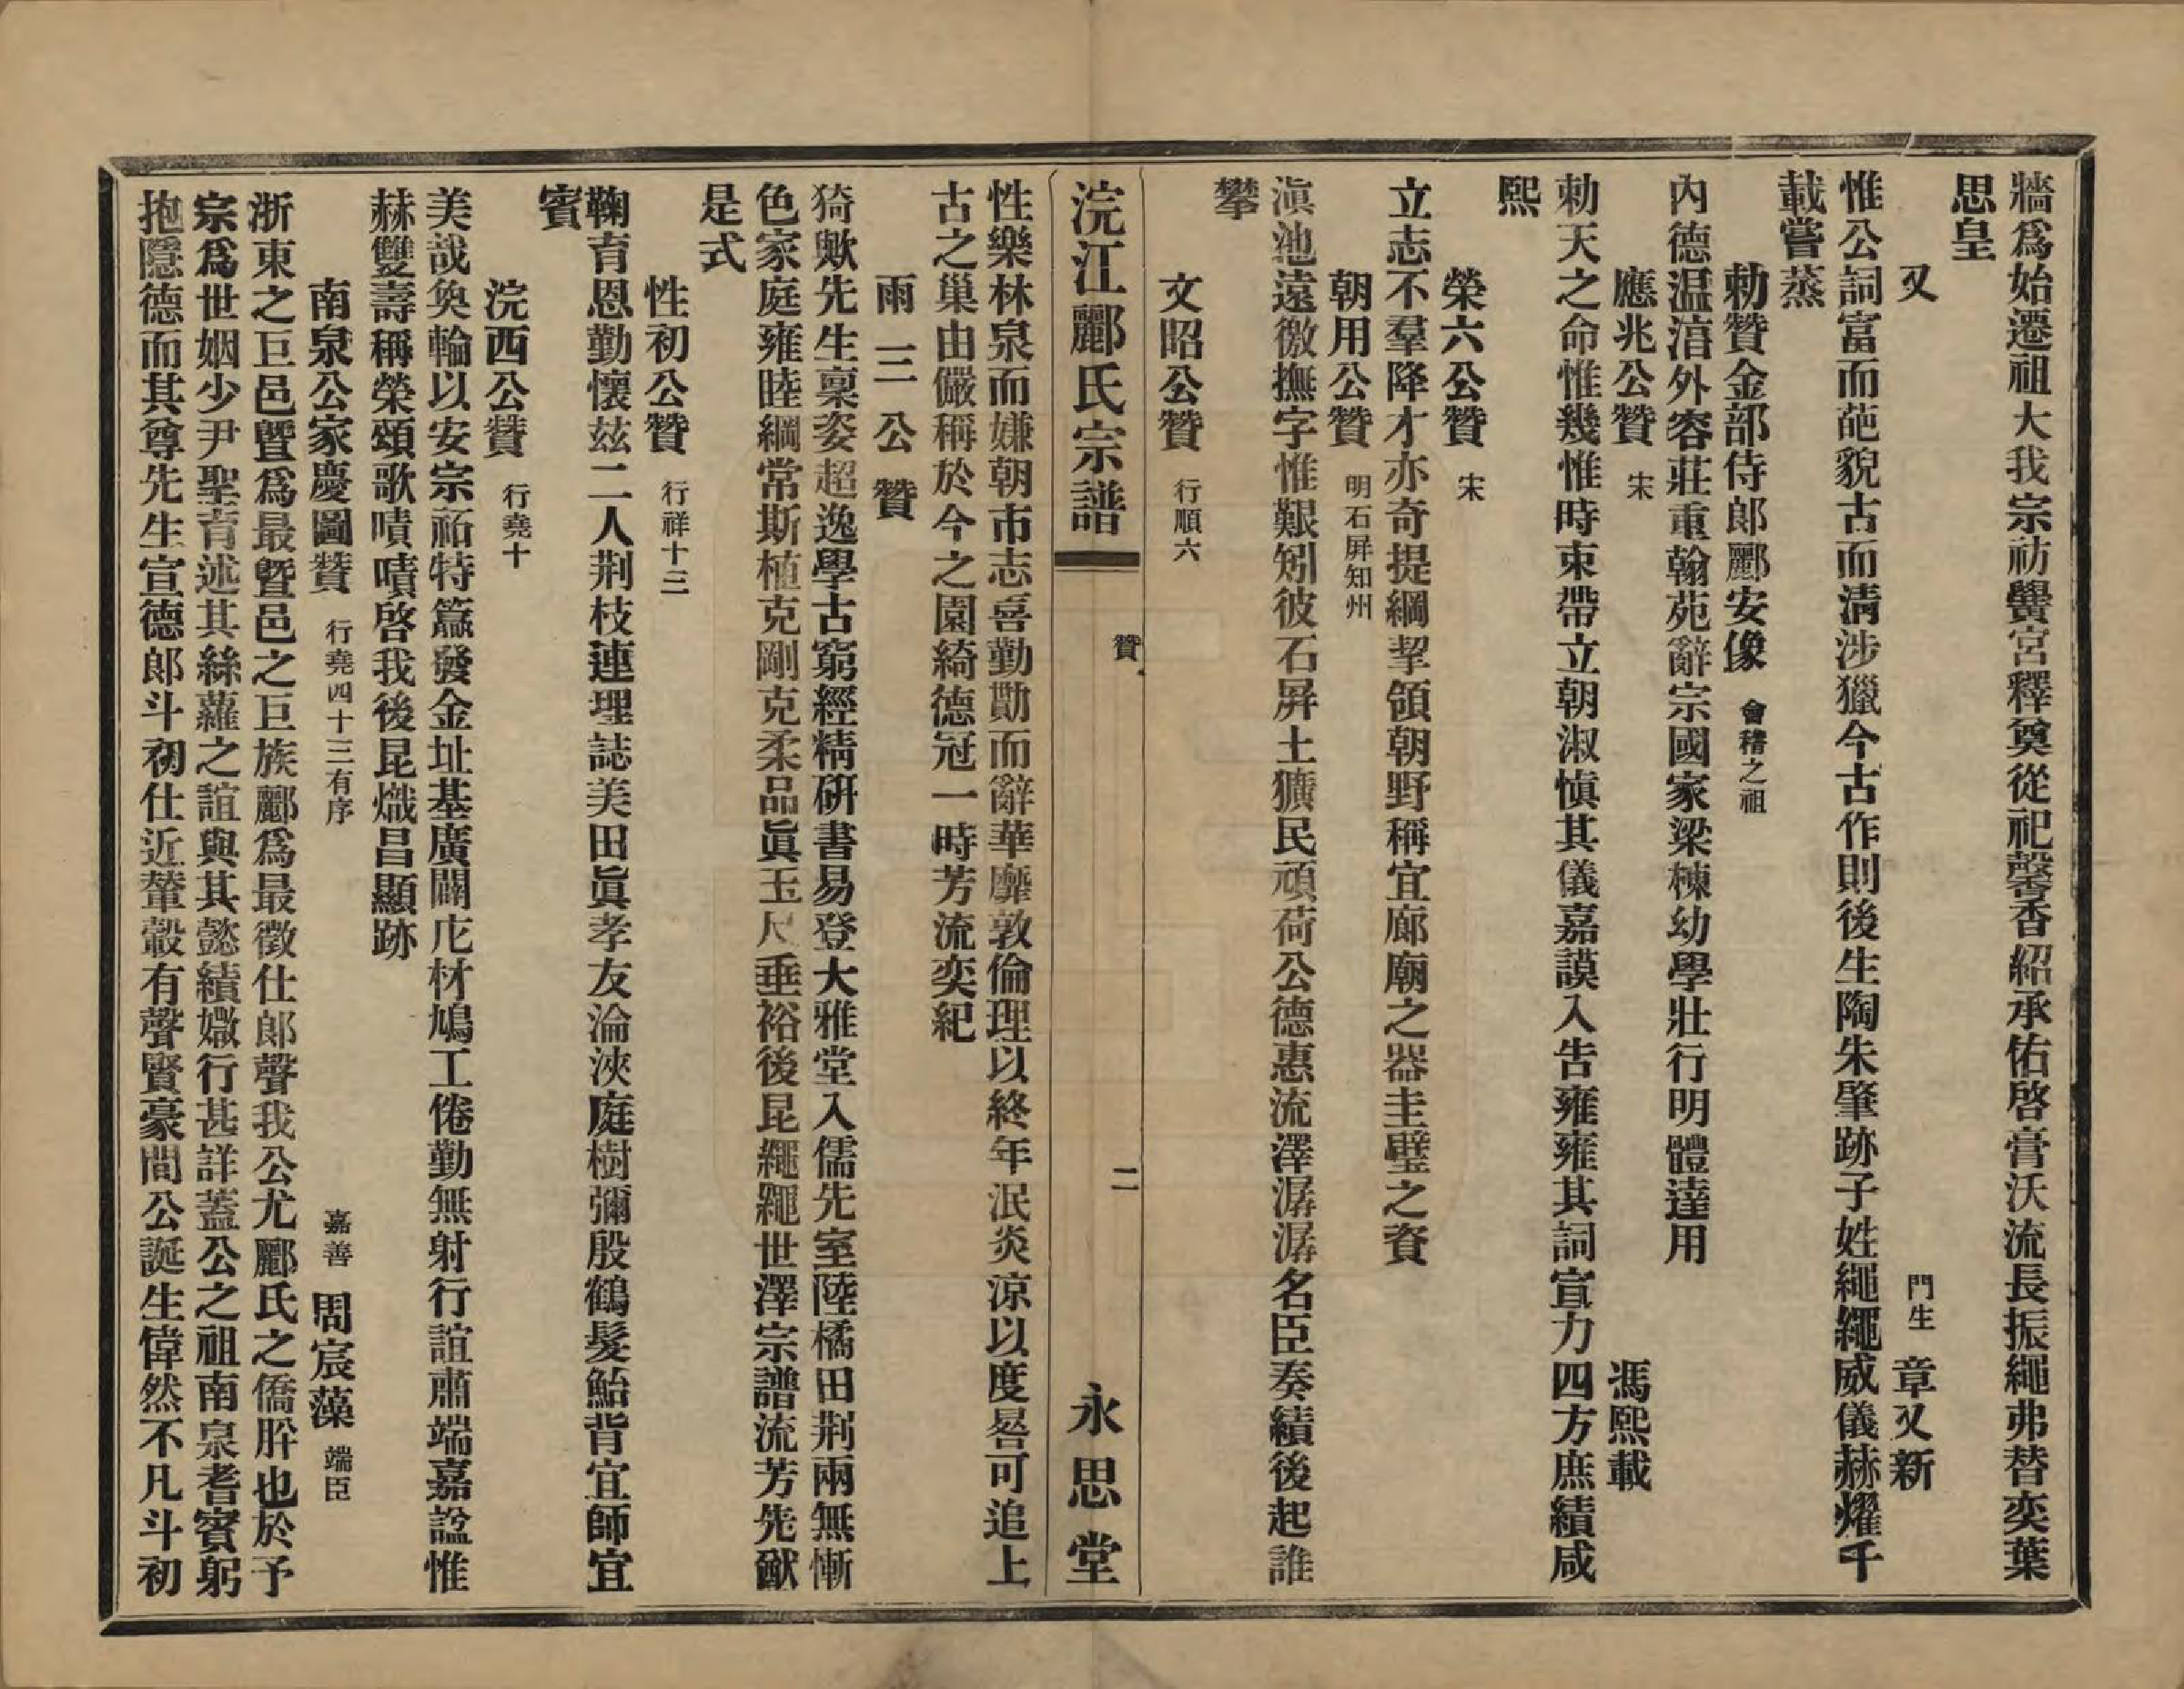 牆爲始遷祖大我宗祊黌宮釋奠從祀馨香紹承佑啓膏沃流長振繩弗替奕葉
思皇
又　門生　章又新
惟公詞富而葩貌古而淸涉獵今古作則後生陶朱肇跡子姓繩繩威儀赫燿千
載嘗蒸
勅贊金部侍郎酈安像　會稽之祖
內德温湻外容莊重翰苑辭宗國家梁棟幼學壯行明體達用
應兆公贊　宋　馮熙載
勅天之命惟幾惟時束帶立朝淑愼其儀嘉謨入告雍雍其詞宣力四方庶績咸
熙
榮六公贊　宋
立志不羣降才亦奇提綱挈領朝野稱宜廊廟之器圭璧之資
朝用公贊　明石屛知州
滇池遠徼撫字惟艱矧彼石屛土獷民頑荷公德惠流澤潺潺名臣奏績後起誰
攀
文昭公贊　行順六
浣江酈氏宗譜　贊　二　永思堂
性樂林泉而嫌朝市志喜勤勩而辭華靡敦倫理以終年泯炎涼以度晷可追上
古之巢由儼稱於今之園綺德冠一時芳流奕紀
雨三公贊
猗歟先生稟姿超逸學古窮經精硏書易登大雅堂入儒先室陸橘田荆兩無慚
色家庭雍睦綱常斯植克剛克柔品眞玉尺垂裕後昆繩繩世澤宗譜流芳先猷
是式
性初公贊　行祥十三
鞠育恩勤懷玆二人荆枝連理誌美田眞孝友淪浹庭樹彌殷鶴髮鮐背宜師宜
賓
浣西公贊　行堯十
美哉奐輪以安宗祏特簉發金址基廣闢庀材鳩工倦勤無射行誼肅端嘉謚惟
赫雙壽稱榮頌歌嘖嘖啓我後昆熾昌顯跡
南泉公家慶圖贊　行堯四十三有序　嘉善　周宸藻　端臣
浙東之巨邑曁爲最曁邑之巨族酈爲最徵仕郎聲我公尤酈氏之僑肸也於予
宗爲世姻少尹聖育述其絲蘿之誼與其懿績媺行甚詳蓋公之祖南泉耆賓躬
抱隱德而其尊先生宣德郎斗初仕近輦轂有聲賢豪間公誕生偉然不凡斗初